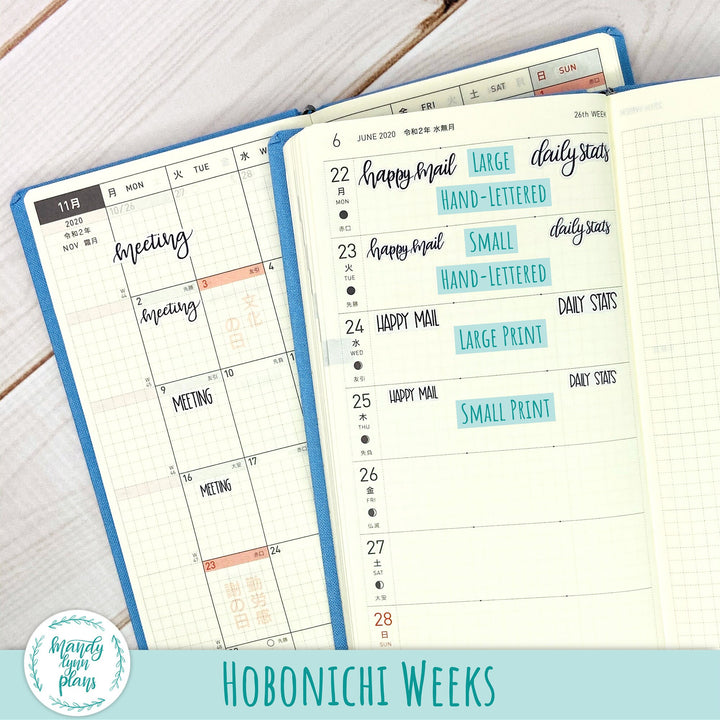 金 FRI 土 SAT 日 SUN
1
月 MON 火 TUE 水 WE
11月
2020
令和2年
NOV 霜月
10/26 27 28
meeting
2 先勝 3 友引 4
meeting
文化の日
9 友引 10
MEETING
16 大安 17
MEETING
23 赤口 24
勤労感謝の日
先勝
6 JUNE 2020 令和2年 水無月 26th WEEK
22 happy mail LARGE daily stats
月
MON HAND-LETTERED
赤口
23 happy mail SMALL daily stats
火
TUE HAND-LETTERED
先勝
24 HAPPY MAIL DAILY STATS
水 LARGE PRINT
WED
友引
25 HAPPY MAIL DAILY STATS
木 SMALL PRINT
THU
先負
26
金
FRI
仏滅
27
土
SAT
大安
28
日
SUN
mandy lynn plans
HOBONICHI WEEKS